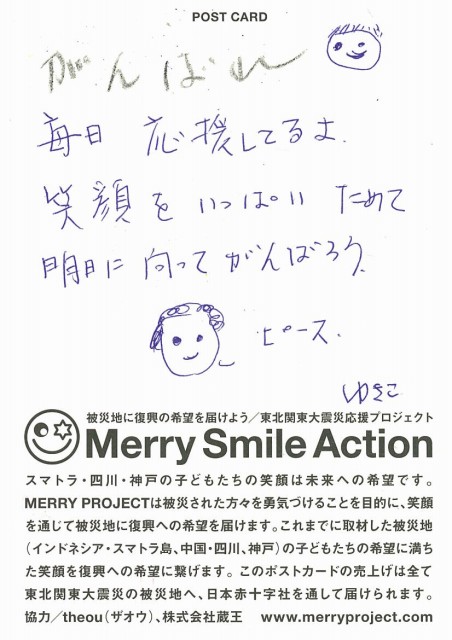 POST CARD
がんばれ
毎日 応援してるよ.
笑顔を いっぱい ためて
明日に 向って がんばろう.
ピース.
ゆきこ
被災地に復興の希望を届けよう／東北関東大震災応援プロジェクト
Merry Smile Action
スマトラ・四川・神戸の子どもたちの笑顔は未来への希望です。
MERRY PROJECTは被災された方々を勇気づけることを目的に、笑顔
を通じて被災地に復興への希望を届けます。これまでに取材した被災地
（インドネシア・スマトラ島、中国・四川、神戸）の子どもたちの希望に満ち
た笑顔を復興への希望に繋げます。このポストカードの売上げは全て
東北関東大震災の被災地へ、日本赤十字社を通して届けられます。
協力／theou（ザオウ）、株式会社蔵王 www.merryproject.com